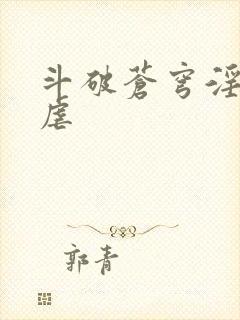 斗破苍穹淫
虐
郭青